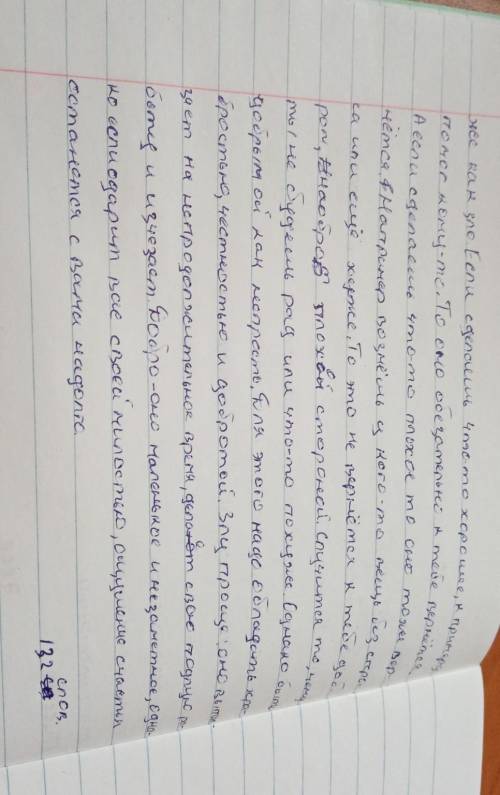 же как зло. Если сделаешь что-то хорошее, к примеру
помог кому-то. То оно обезательно к тебе вернётся.
А если сделаешь что-то плохое то оно тоже вер-
нётся. Например возмёшь у кого-то вещь без спро
са или ещё хуже. То это не вернётся к тебе доб
ром, наоборот плохой стороной. Случится то, чему
ты не будешь рад или что-то похуже. Однако быть
добрым ой как непросто. Для этого надо обладать хра-
бростью, честностью и добротой. Злу проще: оно выпи-
зает на непродолжительное время, делает свою подлую ра-
боту и изчезает. Добро-оно маленькое и незаметное, одна-
ко осподарит вас своей милостью, ощущение счастья
останется с вами надолго.
132 слов.